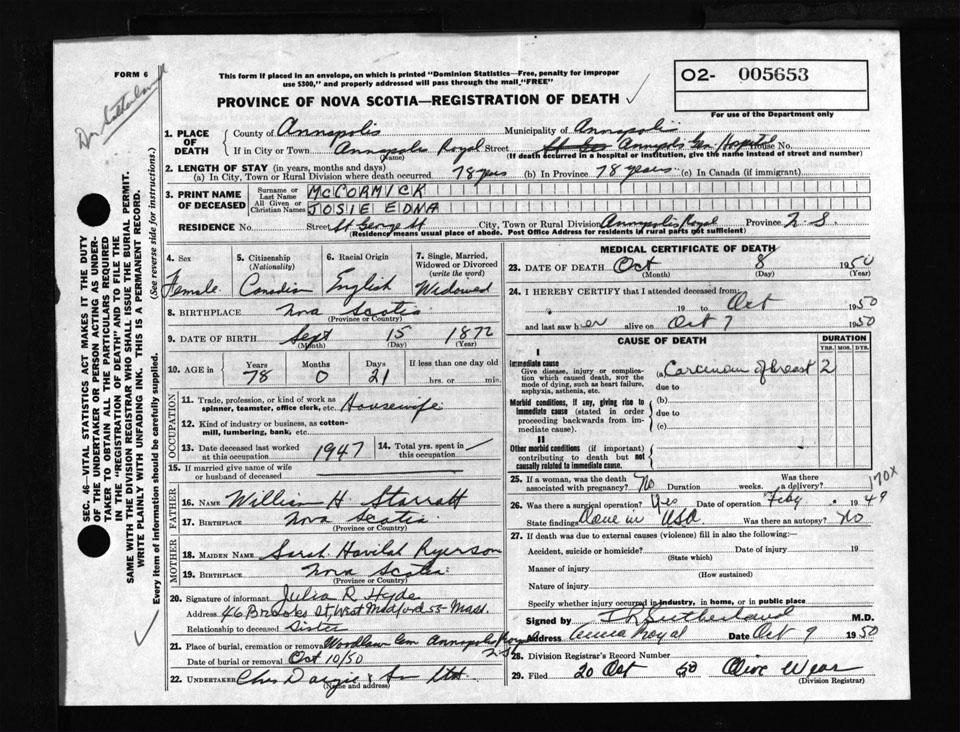 FORM 6
This form if placed in an envelope, on which is printed "Dominion Statistics—Free, penalty for improper
use $300," and properly addressed will pass through the mail "FREE"
O2- 005653
For use of the Department only
PROVINCE OF NOVA SCOTIA—REGISTRATION OF DEATH ✓
Dr Sutherland
SEC. 46—VITAL STATISTICS ACT MAKES IT THE DUTY
OF THE UNDERTAKER OR PERSON ACTING AS UNDER-
TAKER TO OBTAIN ALL THE PARTICULARS REQUIRED
IN THE "REGISTRATION OF DEATH" AND TO FILE THE
SAME WITH THE DIVISION REGISTRAR WHO SHALL ISSUE THE BURIAL PERMIT.
WRITE PLAINLY WITH UNFADING INK. THIS IS A PERMANENT RECORD.
Every item of information should be carefully supplied. (See reverse side for instructions.)
1. PLACE OF DEATH County of Annapolis Municipality of Annapolis
If in City or Town Annapolis Royal Street Annapolis Gen. Hospital House No.
(Name) (If death occurred in a hospital or institution, give the name instead of street and number)
2. LENGTH OF STAY (in years, months and days)
(a) In City, Town or Rural Division where death occurred 78 yrs (b) In Province 78 years (c) In Canada (if immigrant)
3. PRINT NAME OF DECEASED Surname or Last Name McCORMICK
All Given or Christian Names JOSIE EDNA
RESIDENCE No. Street St George St City, Town or Rural Division Annapolis Royal Province N.S.
(Residence means usual place of abode. Post Office Address for residents in rural parts not sufficient)
4. Sex Female
5. Citizenship (Nationality) Canadian
6. Racial Origin English
7. Single, Married, Widowed or Divorced (write the word) Widowed
8. BIRTHPLACE Nova Scotia
(Province or Country)
9. DATE OF BIRTH Sept 15 1872
(Month) (Day) (Year)
10. AGE in Years 78 Months 0 Days 21 If less than one day old
hrs. or min.
OCCUPATION
11. Trade, profession, or kind of work as
spinner, teamster, office clerk, etc. Housewife
12. Kind of industry or business, as cotton-
mill, lumbering, bank, etc.
13. Date deceased last worked at this occupation 1947
14. Total yrs. spent in this occupation
15. If married give name of wife
or husband of deceased
FATHER
16. NAME William H. Starratt
17. BIRTHPLACE Nova Scotia
(Province or Country)
MOTHER
18. MAIDEN NAME Sarah Havilah Ryerson
19. BIRTHPLACE Nova Scotia
(Province or Country)
20. Signature of informant Julia R. Hyde
Address 46 Brooks St, West Medford 55 - Mass.
Relationship to deceased Sister
21. Place of burial, cremation or removal Woodlawn Cem Annapolis Royal N.S.
Date of burial or removal Oct 10/50
22. UNDERTAKER Chas Dargie & Son Ltd.
(Name and address)
MEDICAL CERTIFICATE OF DEATH
23. DATE OF DEATH Oct 8 1950
(Month) (Day) (Year)
24. I HEREBY CERTIFY that I attended deceased from:
19 to Oct 1950
and last saw her alive on Oct 7 1950
CAUSE OF DEATH
DURATION
YRS. MOS. DYS.
I
Immediate cause
Give disease, injury or complica-
tion which caused death, NOT the
mode of dying, such as heart failure,
asphyxia, asthenia, etc.
(a) Carcinoma of breast 2
due to
Morbid conditions, if any, giving rise to
immediate cause (stated in order
proceeding backwards from im-
mediate cause).
(b)
due to
(c)
II
Other morbid conditions (if important)
contributing to death but not
causally related to immediate cause.
25. If a woman, was the death
associated with pregnancy? No Duration weeks. Was there a delivery?
170X
26. Was there a surgical operation? Yes Date of operation Feby 1949
State findings Done in USA. Was there an autopsy? No
27. If death was due to external causes (violence) fill in also the following:
Accident, suicide or homicide? Date of injury 19
(State which)
Manner of injury
(How sustained)
Nature of injury
Specify whether injury occurred in industry, in home, or in public place
Signed by Sutherland M.D.
Address Anna Royal Date Oct 9 1950
28. Division Registrar's Record Number
29. Filed 20 Oct 50 Olive Wear
(Division Registrar)